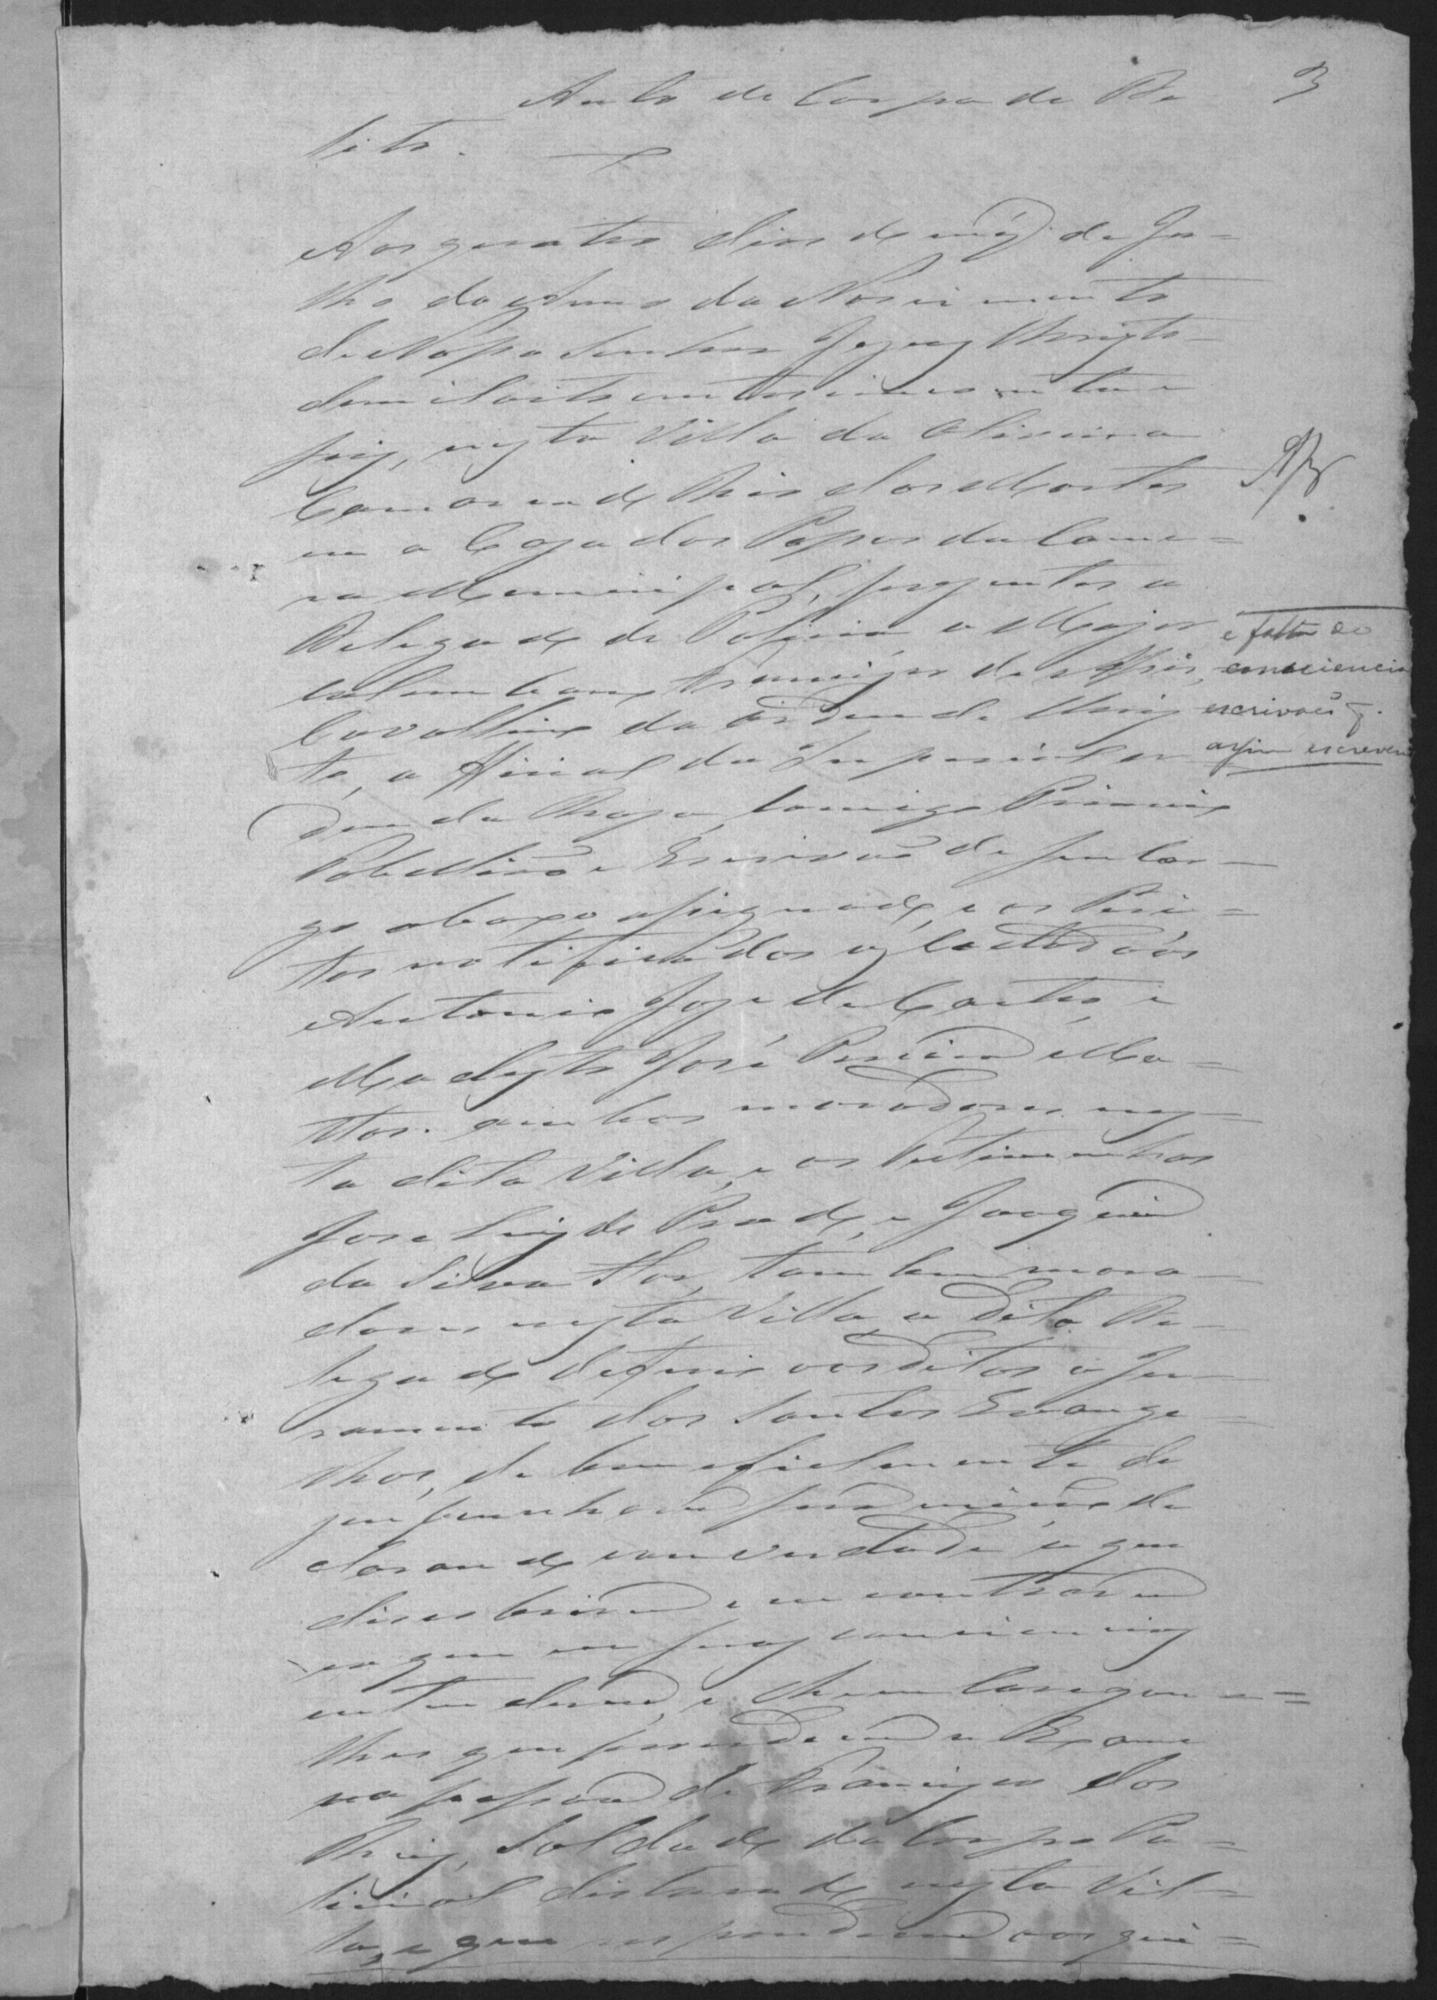 3
Auto de Corpo de De
licto.
Aos quatro dias do mez de Ju=
lho do Anno do Nascimento
de Nosso Senhor Jezus Christo
de mil oito centos cincoenta e
seis, nesta Villa da Oliveira
Comarca do Rio das Mortes
em a Caza dos Passos da Cama=
ra Municipal, prezentes o
Delegado de Policia, o Major
de Assis,
Cavalleiro da Ordem de Chris
to, e Official da Imperial Or
dem da Roza, comigo Primeiro
Tabelliaõ e Escrivaõ de seu Car=
go abaxo assignado, e os Peri=
tos notificados os Cidadaõs
Antonio Joze de Castro, e
Modesto José Pereira Ma=
ttos. ambos moradores nes=
ta dita Villa, e as Testimunhas
Jose Luiz de Prado, e Joaquim
da Silva tambem mora=
dores nesta Villa, o dito De=
legado deferio aos ditos o ju=
ramento dos Santos Evange
lhos, de bem e fielmente de
sempenharem sua missaõ de
clarando com verdade o que
discobrirem e encontrarem
e o que em suas consciencias
entenderem, e lhes encarregou=
lhes que procedecem a Exame
na pessoa de Francisco dos
Reis, Soldado do Corpo Po=
licial destacado nesta Vil=
la, e que respondecem aos qui=
e falta de
consciencia
escrivaẽs q.
assim escrevem